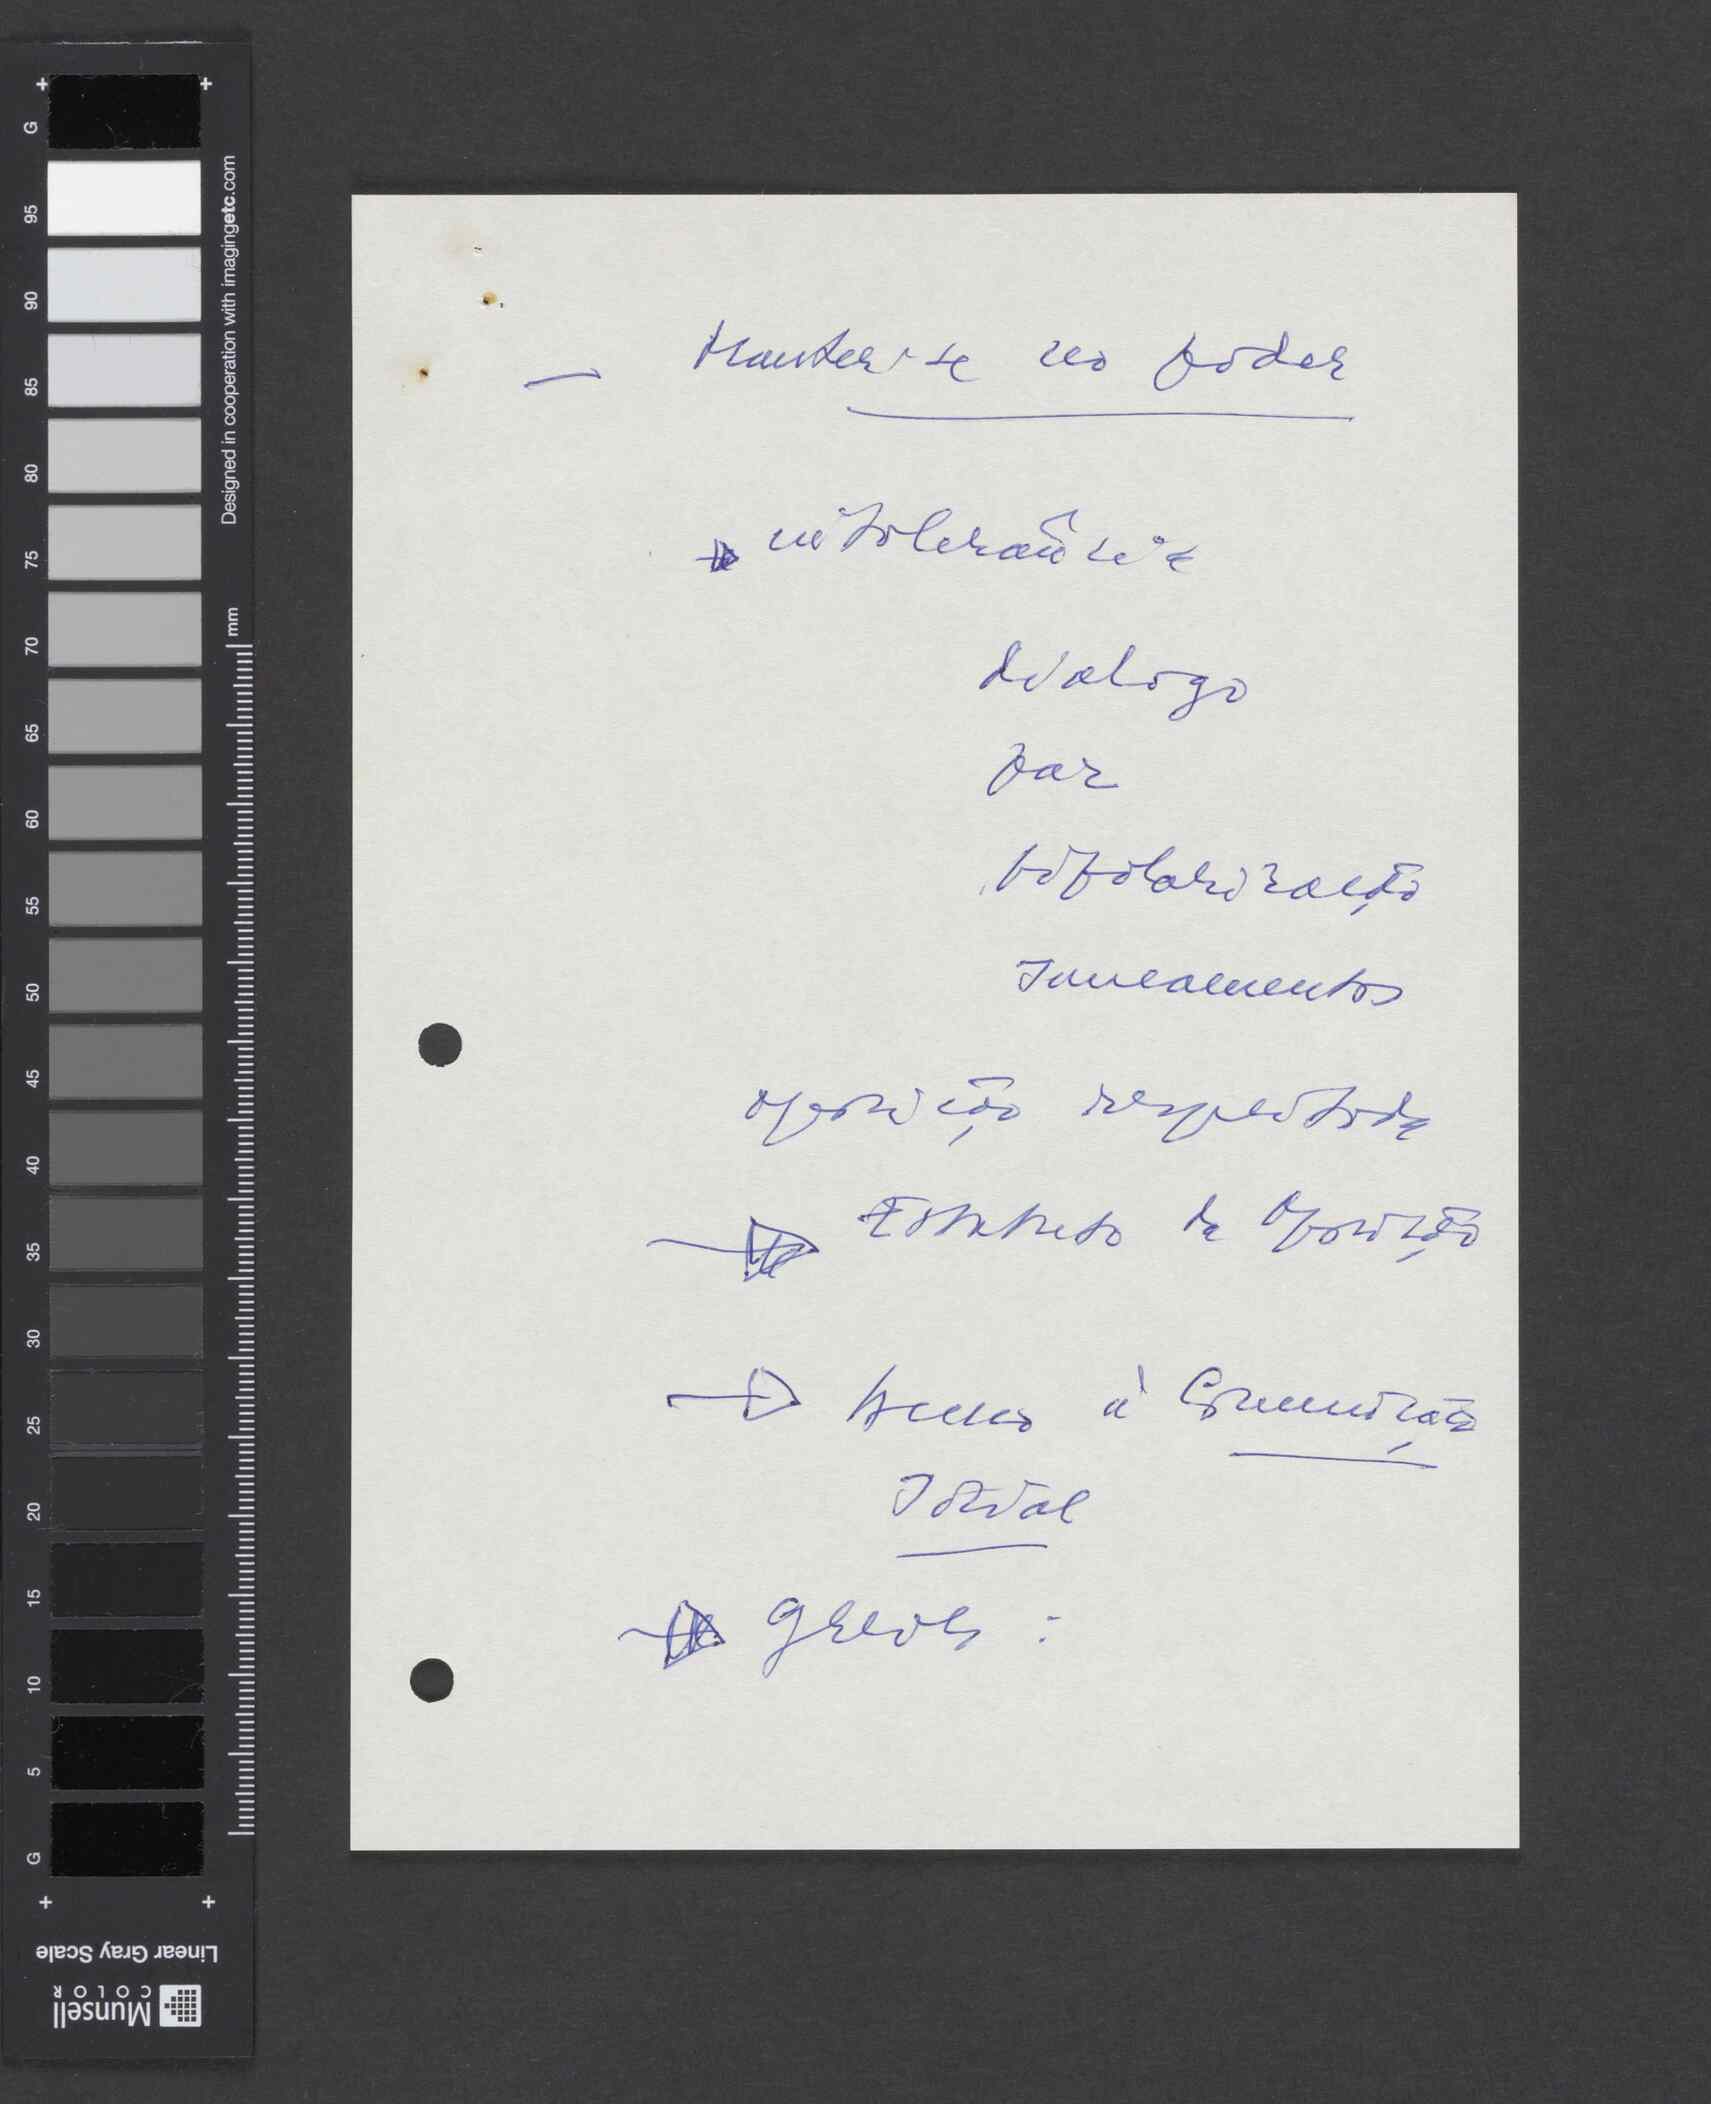 — Manter-se no poder
→ intolerância
dialogo
paz
bipolarização
Saneamentos
oposição respeitada
→ Estatuto da Oposição
→ Acesso à Comunicação
Social
→ greves :
G
95
90
85
80
75
70
65
60
55
50
45
40
35
30
25
20
15
10
5
G
Designed in cooperation with imagingetc.com
mm
Linear Gray Scale
Munsell
COLOR